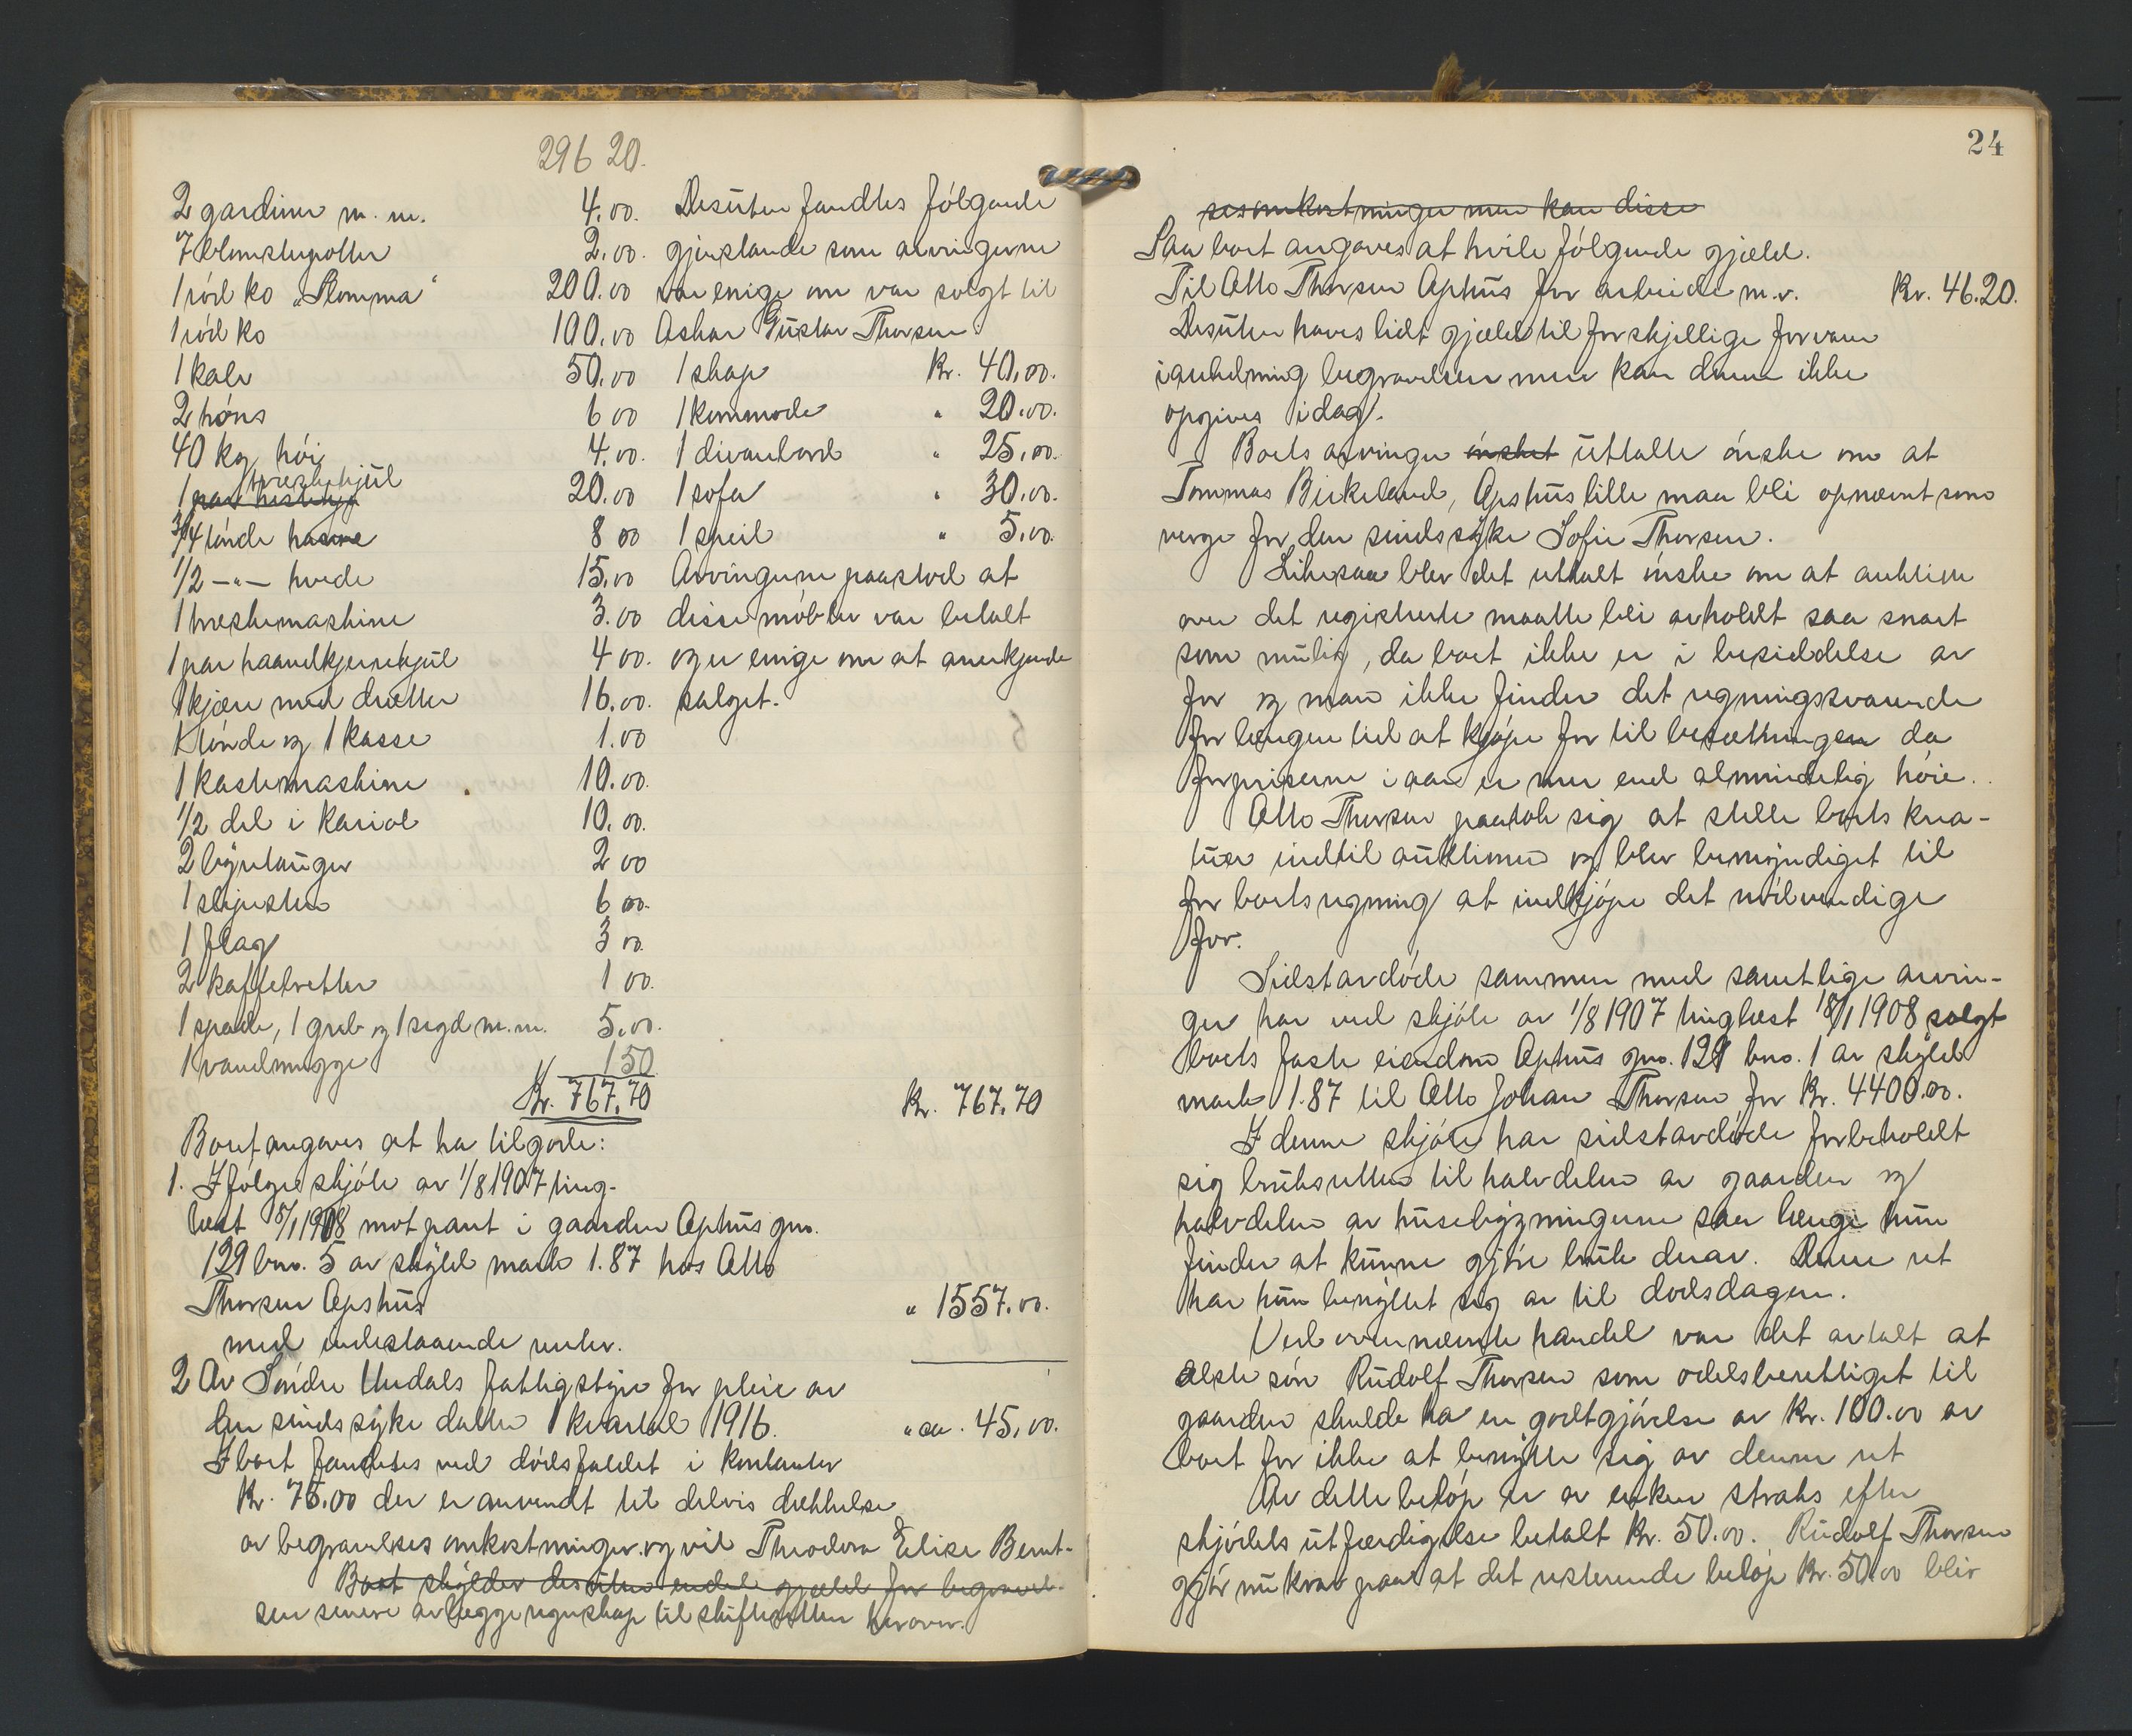 296 20.
2 gardiner m. m. 4.00.
7 blomsterpotter 2.00.
1 röd ko „Plomma“ 200.00
1 röd ko 100.00
1 kalv 50.00
2 höns 6 00
40 kg. höi 4.00.
1 ~~par hestehjul~~ træskehjul 20.00
3/4 tönde havre 8 00
1/2 -"- hvede 15.00
1 træskemaskine 3.00
1 par haandkjerrehjul 4 00.
1 kjerre med drætter 16.00.
1 tönde og 1 kasse 1.00
1 kastemaskine 10.00.
1/2 del i kariol 10.00.
2 lysetanger 2 00
1 slipesten 6 00.
1 flag 3 00.
2 kaffetretter 1 00.
1 spade, 1 greb og 1 segd m. m. 5.00.
1 vandmugge 1 50
Kr. 767.70 Kr. 767.70
Desuten fandtes fölgende
gjenstande som arvingerne
var enige om var solgt til
Askar Gustav Thorsen:
1 skap Kr. 40.00.
1 kommode " 20.00.
1 divanbord " 25.00.
1 sofa " 30.00.
1 speil " 5.00.
Arvingerne paastod at
disse möbler var betalt
og er enige om at anerkjende
salget.
Boet angaves at ha tilgode:
1. Ifölge skjöte av 1/8 1907 ting-
læst 18/1 1908 mot pant i gaarden Aphus gno.
129 bno. 5 av skyld mark 1.87 hos Otto
Thorsen Apshus " 1557.00.
med indestaaende renter.
2 Av Söndre Undals fattigstyre for pleie av
den sindssyke datter 1 kvartal 1916. " ca. 45.00.
I boet fandtes ved dödsfaldet i kontanter
Kr. 75.00 der er anvendt til delvis dækkelse
av begravelses omkostninger og vil Theodora Elise Bernt-
~~Boet skylder desuten endel gjæld for begravel-~~
sen senere avlægge regnskap til skifteretten herover.
24
~~sesomkostninger men kan disse~~
Paa boet angaves at hvile fölgende gjæld.
Til Otto Thorsen Aphus for arbeide m. v. Kr. 46.20.
Desuten haves lidt gjæld til forskjellige for varer
i anledning begravelsen men kan denne ikke
opgives idag.
Boets arvinger ~~önsket~~ uttalte önske om at
Tommas Birkeland, Apshus lille maa bli opnævnt som
verge for den sindssyke Sofie Thorsen.
Likesaa blev det uttalt önske om at auktion
over det registrerte maatte bli avholdt saa snart
som mulig, da boet ikke er i besiddelse av
for og man ikke finder det regningssvarende
for længere tid at kjöpe for til besætningen da
forpriserne i aar er mer end almindelig höie.
Otto Thorsen paatok sig at stelle boets krea-
turer indtil auktionen og blev bemyndiget til
for boets regning at indkjöpe det nödvendige
for.
Sidstavdöde sammen med samtlige arvin-
ger har ved skjöte av 1/8 1907 tinglæst 18/1 1908 solgt
boets faste eiendom Aphus gno. 129 bno. 1 av skyld
mark 1.87 til Otto Johan Thorsen for Kr. 4400.00.
I denne skjöte har sidstavdöde forbeholdt
sig bruksretten til halvdelen av gaarden og
halvdelen av husebygningerne saa længe hun
finder at kunne gjöre bruk derav. Denne ret
har hun benyttet sig av til dödsdagen.
Ved ovennævnte handel var det avtalt at
ælste sön Rudolf Thorsen som odelsberettiget til
gaarden skulde ha en godtgjörelse av Kr. 100.00 av
boet for ikke at benytte sig av denne ret
Av dette belöp er av enken straks efter
skjödets utfærdigelse betalt Kr. 50.00. Rudolf Thorsen
gjör nu krav paa at det resterende belöp Kr. 50.00 blir